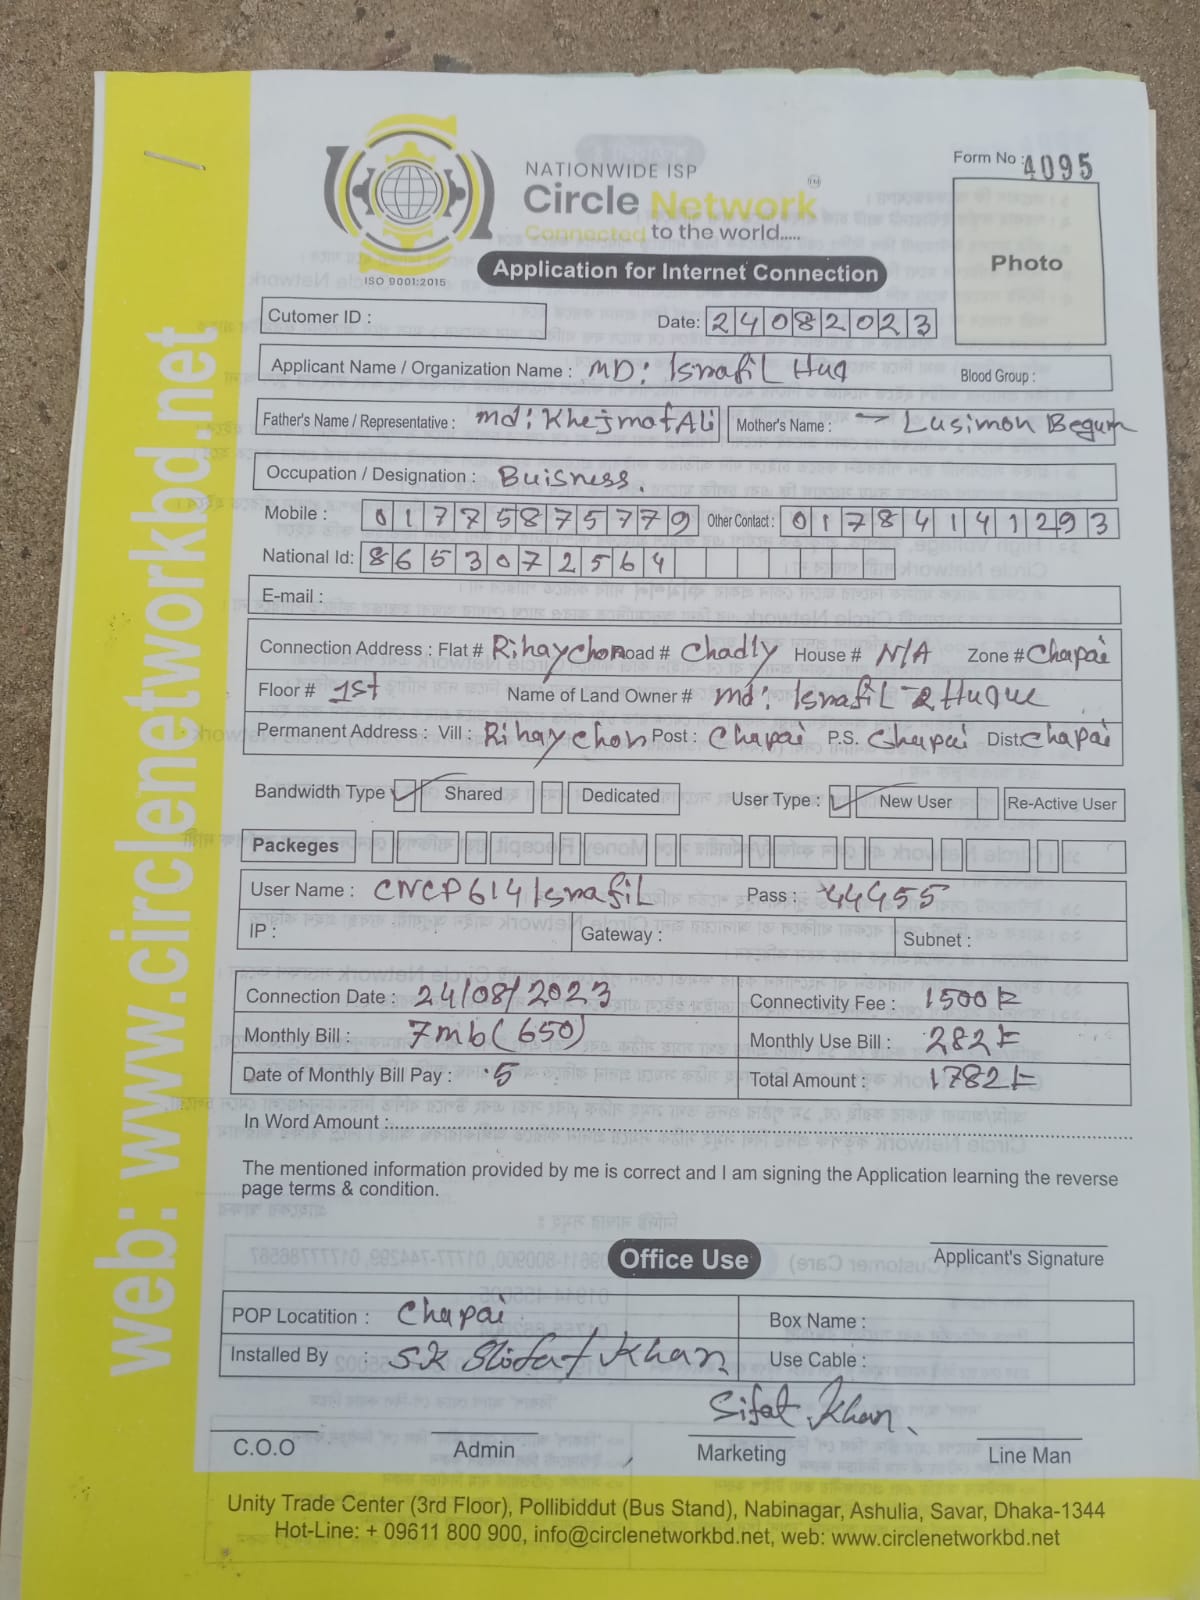 NATIONWIDE ISP
Circle Network TM
Connected to the world.....
ISO 9001:2015
Form No : 4095
Application for Internet Connection
Photo
Cutomer ID :
Date: 24082023
Applicant Name / Organization Name : MD: Israfil Huq
Blood Group :
Father's Name / Representative : md: Khejmot Ali Mother's Name : Lusimon Begum
Occupation / Designation : Buisness.
Mobile : 01775875779 Other Contact : 01784141293
National Id: 8653072564
E-mail :
Connection Address : Flat # Rihaychor Road # Chadly House # N/A Zone # Chapai
Floor # 1st Name of Land Owner # md: Israfil Huque
Permanent Address : Vill : Rihaychor Post : Chapai P.S. Chapai Dist: Chapai
Bandwidth Type ✓ Shared Dedicated User Type : ✓ New User Re-Active User
Packeges
User Name : CNCP614Israfil Pass : 44455
IP : Gateway : Subnet :
Connection Date : 24/08/2023 Connectivity Fee : 1500 E
Monthly Bill : 7mb(650) Monthly Use Bill : 282 E
Date of Monthly Bill Pay : 5 Total Amount : 1782 E
In Word Amount :
The mentioned information provided by me is correct and I am signing the Application learning the reverse
page terms & condition.
Office Use
Applicant's Signature
POP Locatition : Chapai Box Name :
Installed By : SK Khan Use Cable :
Sifat Khan
C.O.O Admin Marketing Line Man
Unity Trade Center (3rd Floor), Pollibiddut (Bus Stand), Nabinagar, Ashulia, Savar, Dhaka-1344
Hot-Line: + 09611 800 900, info@circlenetworkbd.net, web: www.circlenetworkbd.net
web: www.circlenetworkbd.net